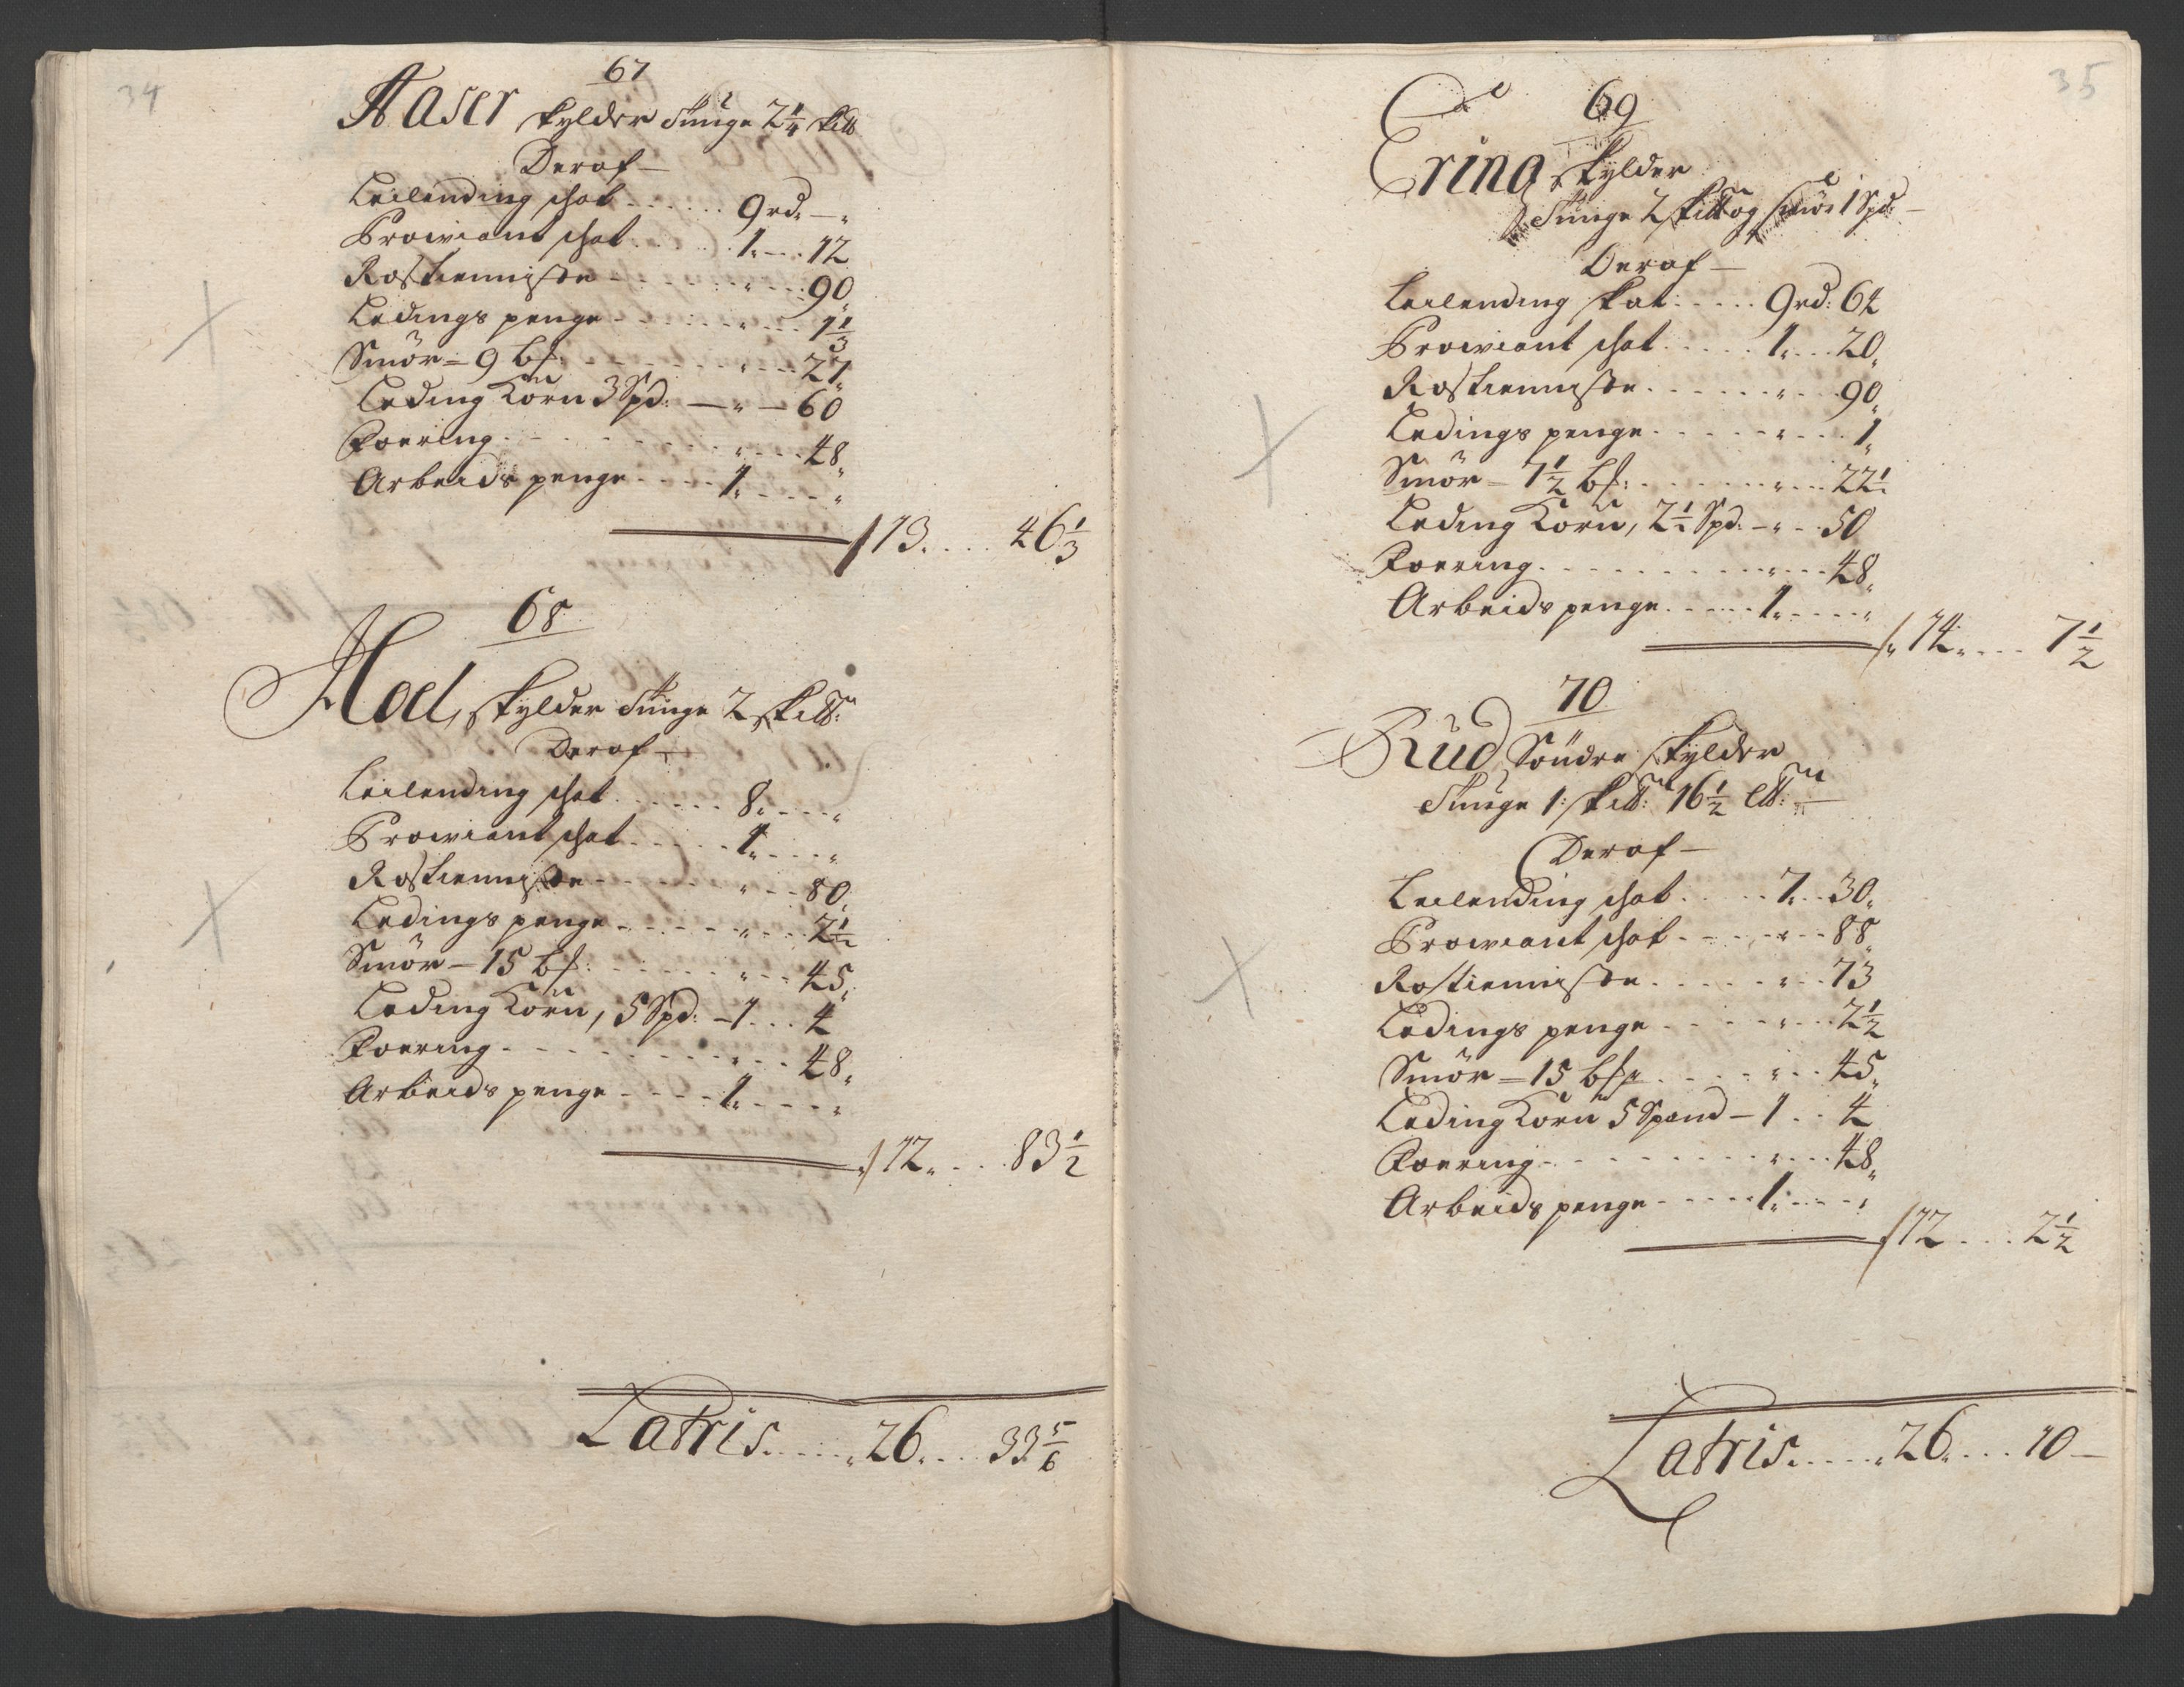 34
67
Aaser skylder Tunge 2 1/4 skill
Deraf —
Leilending schat . . . . . . 9 rd. — „
Proviant schat . . . . . 1. — . 12
Rostienniste - . . . . . „ . . . 90
Ledings penge - . . . . „ - - - 1 1/3
Smör - 9 bs: - - - - - „ - - - 27
Leding Korn 3 Spd: — „ — 60
Foering - - - - - - - „ - - - 48
Arbeids penge - - - - 1. - - - „
13. . . . 46 1/3
68
Hoel, skylder Tunge 2 skill:
Deraf —
Leilending schat . . . . . . 8. - - - „
Proviant schat - - - - - 1. - - - „
Rostienniste - - - - - „ - - - 80
Ledings penge - - - - - „ - - - 2 1/2
Smör - 15 bs: - - - - - „ - - - 45
Leding Korn, 5 Spd: - 1 . . . 4
Foering - - - - - - - - „ - - - 48
Arbeids penge - - - - 1. - - - „
12. . . . 83 1/2
Latris. . . . . „ 26. . . . 33 5/6
35
69
Ering skylder
Tunge 2 skill og smör 1 Spd: —
Deraf —
Leilending skat . . . . . 9 rd: 64
Proviant schat . . . . . 1. . . . 20
Rostienniste. - - - - - „ - - 90
Ledings penge - - - - - „ - - - 1
Smör - 7 1/2 bs: - - - - - „ - - - 22 1/2
Leding Korn, 2 1/2 Spd: - „ - - 50
Foering. - - - - - - - - „ - - - 48
Arbeids penge. - - - - 1. - - - „
14. . . . 7 1/2
70
Rud Söndre skylder
Tunge 1: skill: 16 1/2 lll: —
Deraf —
Leilending schat . . . . . 7. . . 30
Proviant schat - - - - „ - - 88
Rostienniste. - - - - - „ - - 73
Ledings penge - - - - „ - - - 2 1/2
Smör - 15 bs: - - - - „ - - - 45
Leding Korn 5 Spand - 1 . . 4
Foering - - - - - - - - „ - - - 48
Arbeids penge - - - - - 1. - - - „
12 . . . 2 1/2
Latris. . . . . „ 26. . . . 10 —